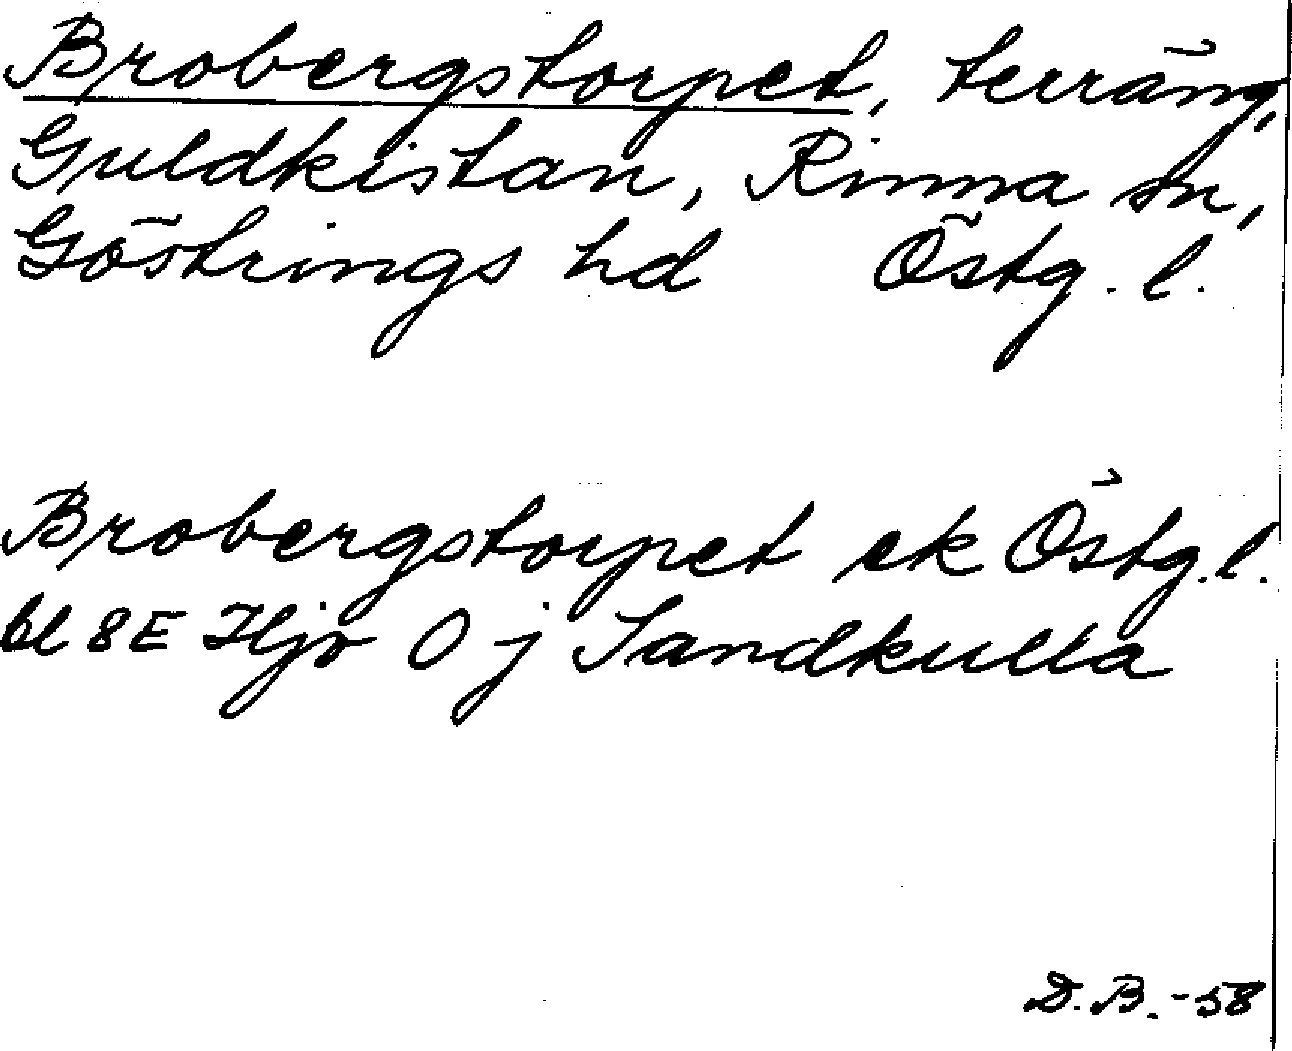 Brobergstorpet, terräng,
Guldkistan, Rinna sn,
Göstrings hd Östg. l.
Brobergstorpet ek Östg. l.
bl 8E Hjo 0 j Sandkulla
D. B. -58